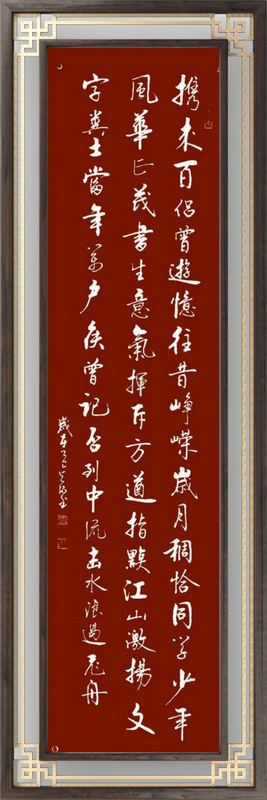 携来百侣曾遊憶往昔崢嶸歲月稠恰同学少年
風華正茂書生意氣揮斥方遒指點江山激揚文
字糞土當年萬户侯曾記否到中流击水浪遏飛舟